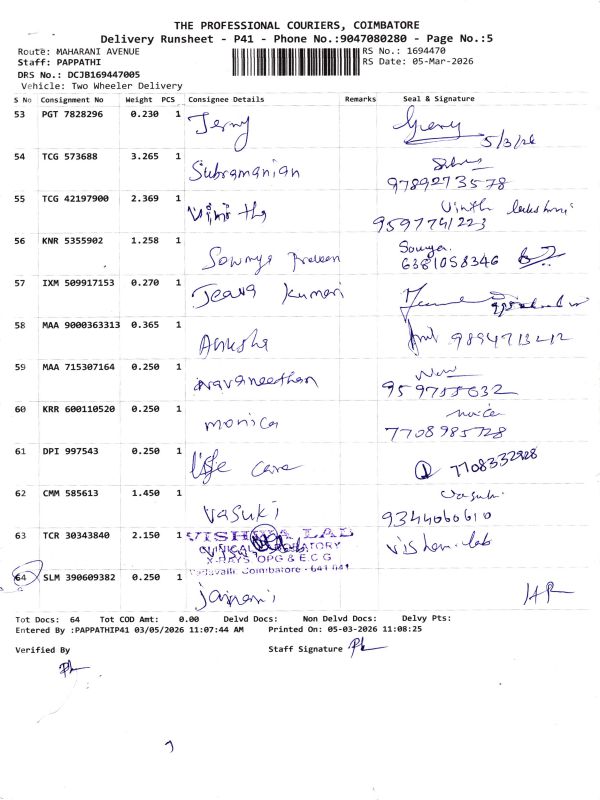 THE PROFESSIONAL COURIERS, COIMBATORE
Delivery Runsheet - P41 - Phone No.:9047080280 - Page No.:5
Route: MAHARANI AVENUE RS No.: 1694470
Staff: PAPPATHI RS Date: 05-Mar-2026
DRS No.: DCJB169447005
Vehicle: Two Wheeler Delivery
S No Consignment No Weight PCS Consignee Details Remarks Seal & Signature
53 PGT 7828296 0.230 1 Jerry
5/3/26
54 TCG 573688 3.265 1 Subramanian
9789273578
55 TCG 42197900 2.369 1 Vinitha Vinth lakshmi
9597741223
56 KNR 5355902 1.258 1 Sowmya Praveen Sowya.
6381058346
57 IXM 509917153 0.270 1 Jeava Kumari
58 MAA 9000363313 0.365 1 Anusha 9894713412
59 MAA 715307164 0.250 1 Navaneethan
9597558632
60 KRR 600110520 0.250 1 monica
7708985728
61 DPI 997543 0.250 1 life care 7708332928
62 CMM 585613 1.450 1 Vasuki
9344060610
63 TCR 30343840 2.150 1 VISHWA LAB
CLINICAL LABORATORY
X-RAYS, OPG & E.C.G
Vadavalli, Coimbatore - 641 041
64 SLM 390609382 0.250 1
Tot Docs: 64 Tot COD Amt: 0.00 Delvd Docs: Non Delvd Docs: Delvy Pts:
Entered By :PAPPATHIP41 03/05/2026 11:07:44 AM Printed On: 05-03-2026 11:08:25
Verified By Staff Signature